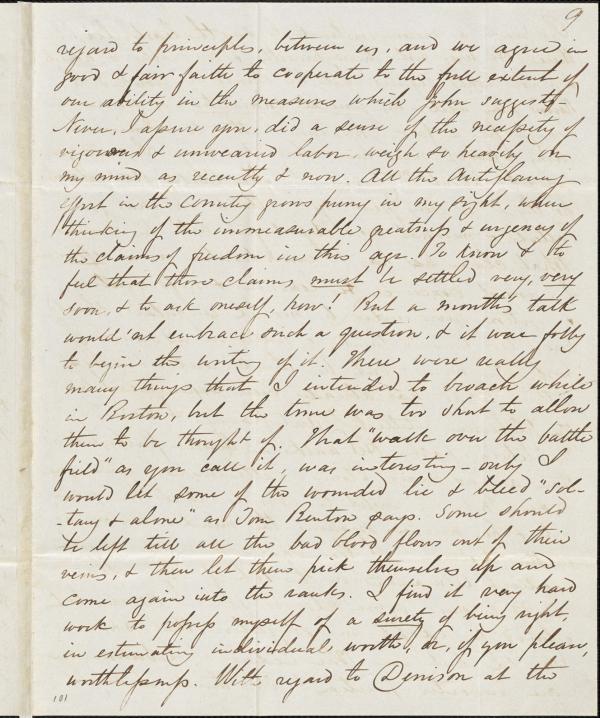 9
regard to principles, between us, and we agree in
good & fair faith to cooperate to the full extent of
our ability in the measures which John suggests.
Never, I assure you, did a sense of the necessity of
vigorous & unwearied labor, weigh so heavily on
my mind as recently & now. All the Antislavery
effort in the Country grows puny in my sight, when
thinking of the immeasurable greatness & urgency of
the claims of freedom in this age. To know & to
feel that those claims must be settled very, very
soon, & to ask oneself, how! But a month's talk
would'nt embrace such a question, & it were folly
to begin the writing of it. There were really
many things that I intended to broach while
in Boston, but the time was too short to allow
them to be thought of. That "walk over the battle
field" as you call it, was interesting - only I
would let some of the wounded lie & bleed "sol-
-tary & alone" as Tom Benton says. Some should
be left till all the bad blood flows out of their
veins, & then let them pick themselves up and
come again into the ranks. I find it very hard
work to possess myself of a surety of being right,
in estimating individual worth, or, if you please,
worthlessness. With regard to Denison at the
101